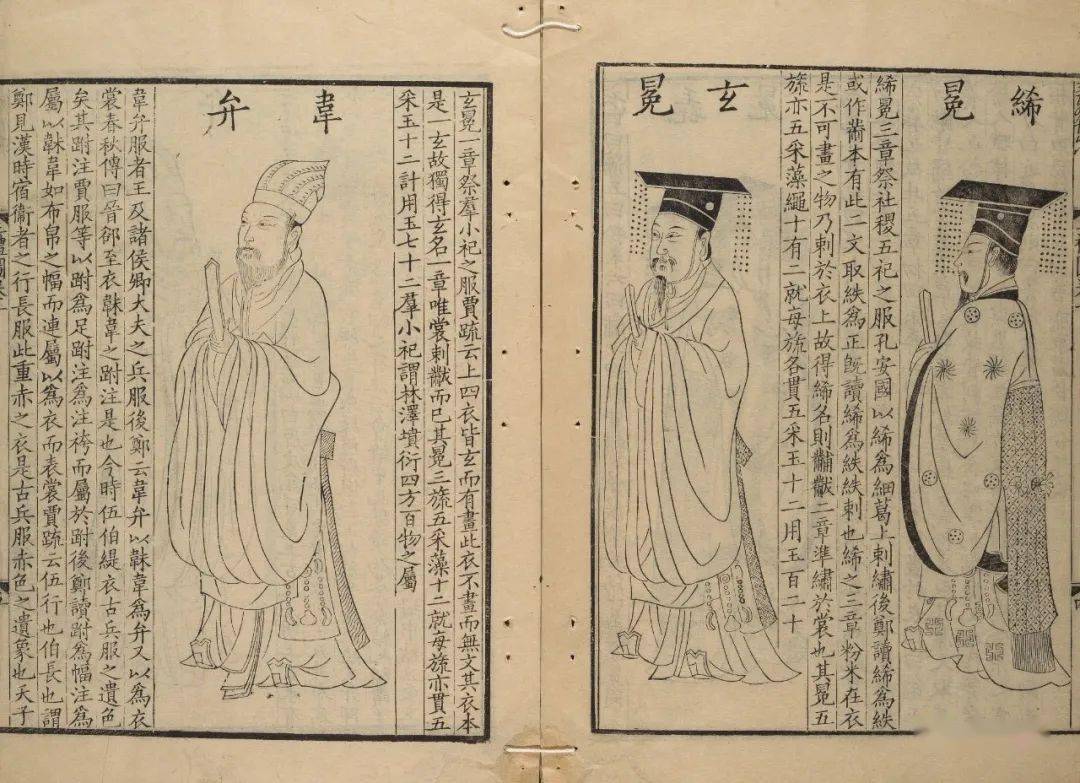 絺冕
絺冕三章祭社稷五祀之服孔安國以絺爲細葛上刺繡後鄭讀絺爲紩
或作黹本有此二文取紩爲正旣讀絺爲紩紩刺也絺之三章粉米在衣
是不可畫之物乃刺於衣上故得絺名則黼黻二章準繡於裳也其冕五
旒亦五采藻繩十有二就每旒各貫五采玉十二用玉百二十
玄冕
玄冕一章祭羣小祀之服賈疏云上四衣皆玄而有畫此衣不畫而無文其衣本
是一玄故獨得玄名一章唯裳刺黻而已其冕三旒五采藻十二就每旒亦貫五
采玉十二計用玉七十二羣小祀謂林澤墳衍四方百物之屬
韋弁
韋弁服者王及諸侯卿大夫之兵服後鄭云韋弁以韎韋爲弁又以爲衣
裳春秋傳曰晉郤至衣韎韋之跗注是也今時伍伯緹衣古兵服之遺色
矣其跗注賈服等以跗爲足跗注爲注袴而屬於跗後鄭讀跗爲幅注爲
屬以韎韋如布帛之幅而連屬以爲衣而表裳賈疏云伍行也伯長也謂
鄭見漢時宿衞者之行長服此重赤之衣是古兵服赤色之遺象也天子